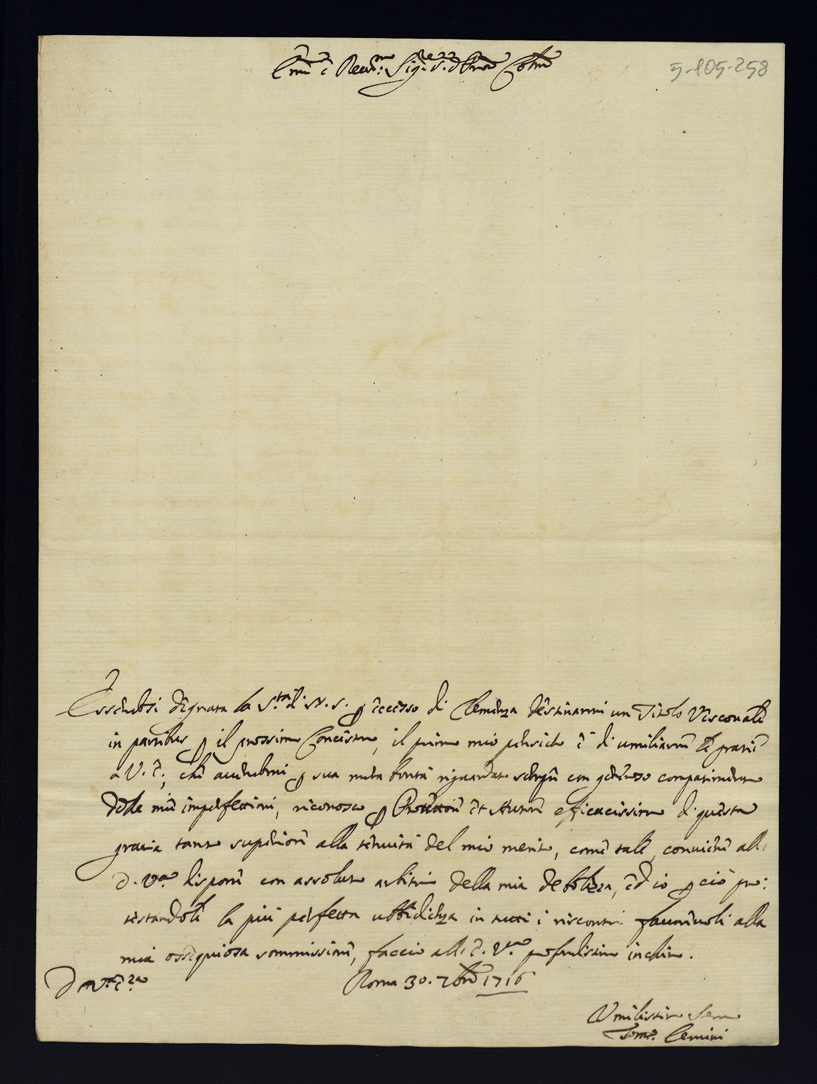 Em.o e Reu.mo Sig.re
5-105-258
Essendosi degnata la S.tà di N. S. p eccesso di Clemenza destinarmi un Titolo Vescovale
in partibus p il prossimo Concistoro, il primo mio pensiero è di umiliarne le grazie
à V. E., che auendomi p sua mera bontà riguardato sempre con generoso compatimento
delle mie imperfezioni, riconosco p Protettore et Autore efficacissimo di questa
grazia tanto superiore alla tenuità del mio merito, come tale, conuiene all'
E. V.ra disporre con assoluto arbitrio della mia debolezza, ed io p ciò pro:
testandole la più perfetta ubbidienza in tutti i riscontri fauoreuoli alla
mia ossequiosa sommissione, faccio all'E. V.ra profondissimo inchino.
D V.ra E.za Roma 30. 7bre 1716
Umilissimo Seru